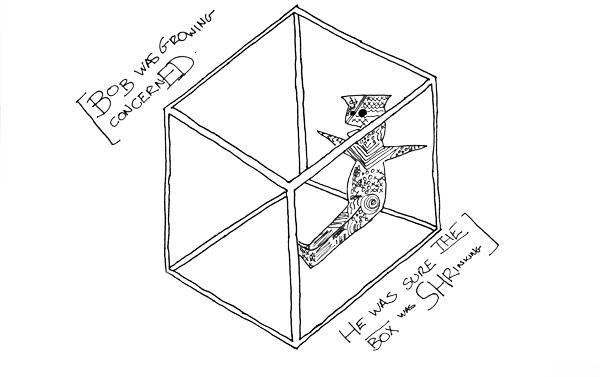 [BOB WAS GROWING
CONCERNED.
HE WAS SURE THE]
BOX WAS SHRINKING